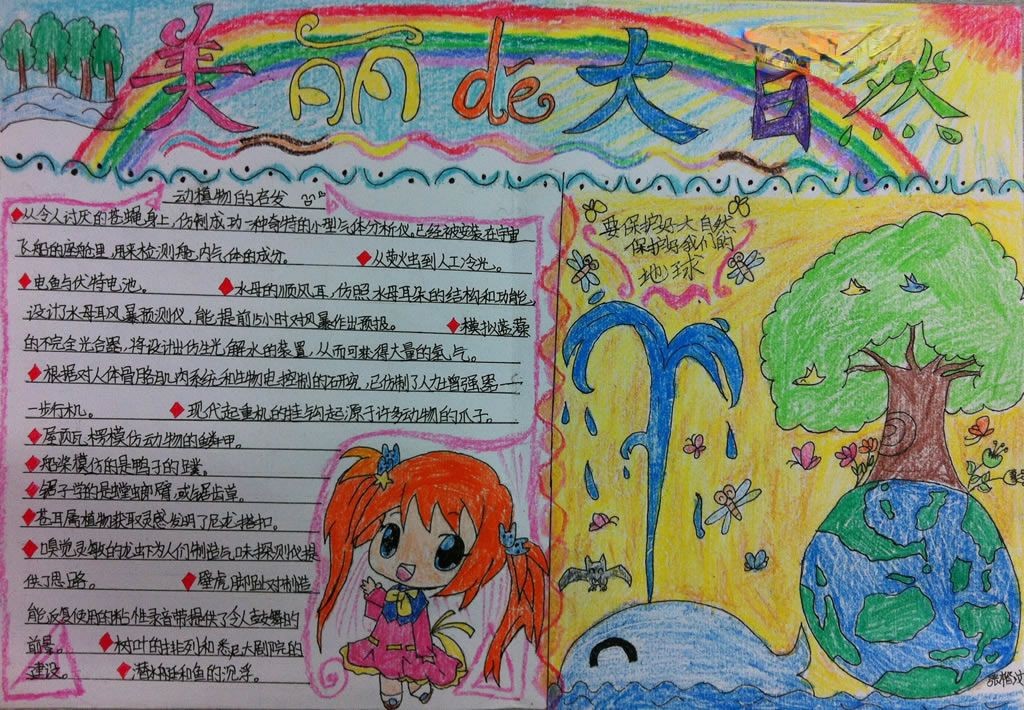 美丽de大自然
动植物的启发
♦从令人讨厌的苍蝇身上,仿制成功一种奇特的小型气体分析仪。已经被安装在宇宙
飞船的座舱里,用来检测舱内气体的成分。 ♦从萤火虫到人工冷光。
♦电鱼与伏特电池。 ♦水母的顺风耳,仿照水母耳朵的结构和功能,
设计了水母耳风暴预测仪,能提前15小时对风暴作出预报。 ♦模拟蓝藻
的不完全光合器,将设计出仿生光解水的装置,从而可获得大量的氢气。
♦根据对人体骨胳肌肉系统和生物电控制的研究,已仿制了人力增强器——
步行机。 ♦现代起重机的挂钩起源于许多动物的爪子。
♦屋顶瓦楞模仿动物的鳞甲。
♦船桨模仿的是鸭子的蹼。
♦锯子学的是螳螂臂,或锯齿草。
♦苍耳属植物获取灵感发明了尼龙搭扣。
♦嗅觉灵敏的龙虾为人们制造气味探测仪提
供了思路。 ♦壁虎脚趾对制造
能反复使用的粘性录音带提供了令人鼓舞的
前景。 ♦树叶的排列和悉尼大剧院的
建设。 ♦潜水艇和鱼的沉浮。
要保护好大自然
保护好我们的
地球